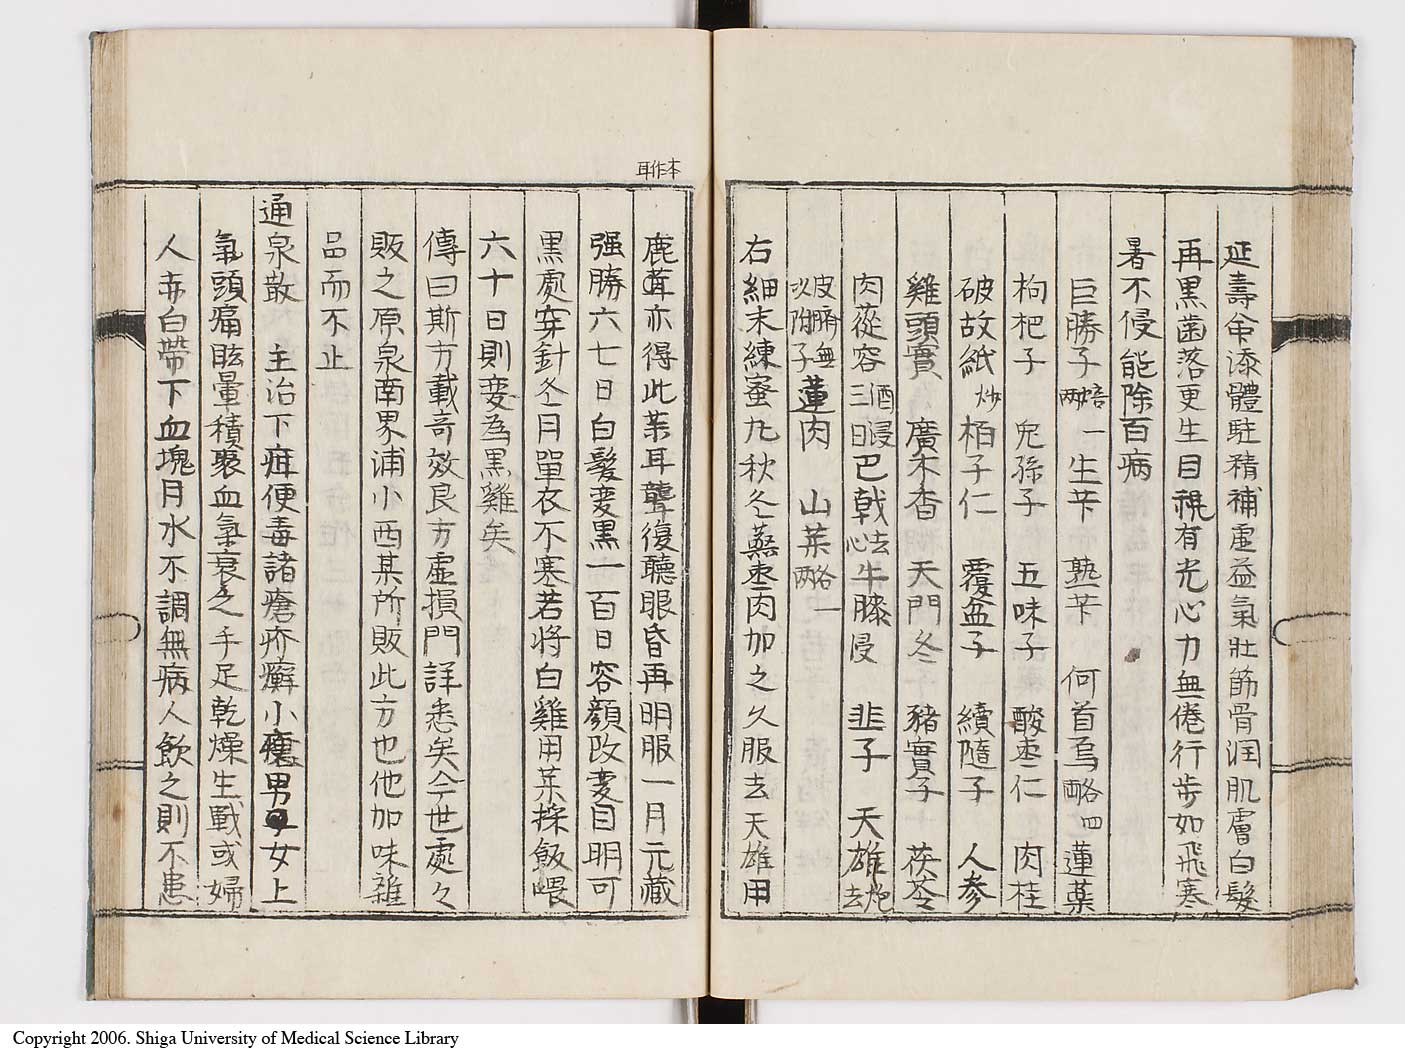 延壽命添體駐精補虛益氣壯筋骨潤肌膚白髮
再黒齒落更生目視有光心力無倦行步如飛寒
暑不侵能除百病
巨勝子焙一两 生芐 熟芐 何首烏四略 蓮藥
枸杞子 兎孫子 五味子 酸枣仁 肉桂
破故紙炒 栢子仁 覆盆子 續隨子 人参
雞頭實 廣木香 天門冬 豬實子 茯苓
肉蓯容酒浸三日 巴戟去心 牛膝浸 韭子 天雄炮去
皮臍無以附子 蓮肉 山药一略两
右細末練蜜九秋冬蒸枣肉加之久服去天雄用
本作耳
鹿茸亦得此药耳聾復聽眼昏再明服一月元藏
强勝六七日白髮変黒一百日容顔改変目明可
黒處穿針冬月單衣不寒若将白雞用药採飯喂
六十日則変為黒雞矣
傳曰斯方載奇效良方虛損門詳悉矣今世處々
販之原泉南界浦小西某所販此方也他加味雜
品而不止
通泉散 主治下疳便毒諸瘡疥癬小瘡男子女上
氣頭痛眩暈積聚血氣衰之手足乾燥生戰或婦
人赤白帶下血塊月水不調無病人飲之則不患
Copyright 2006. Shiga University of Medical Science Library